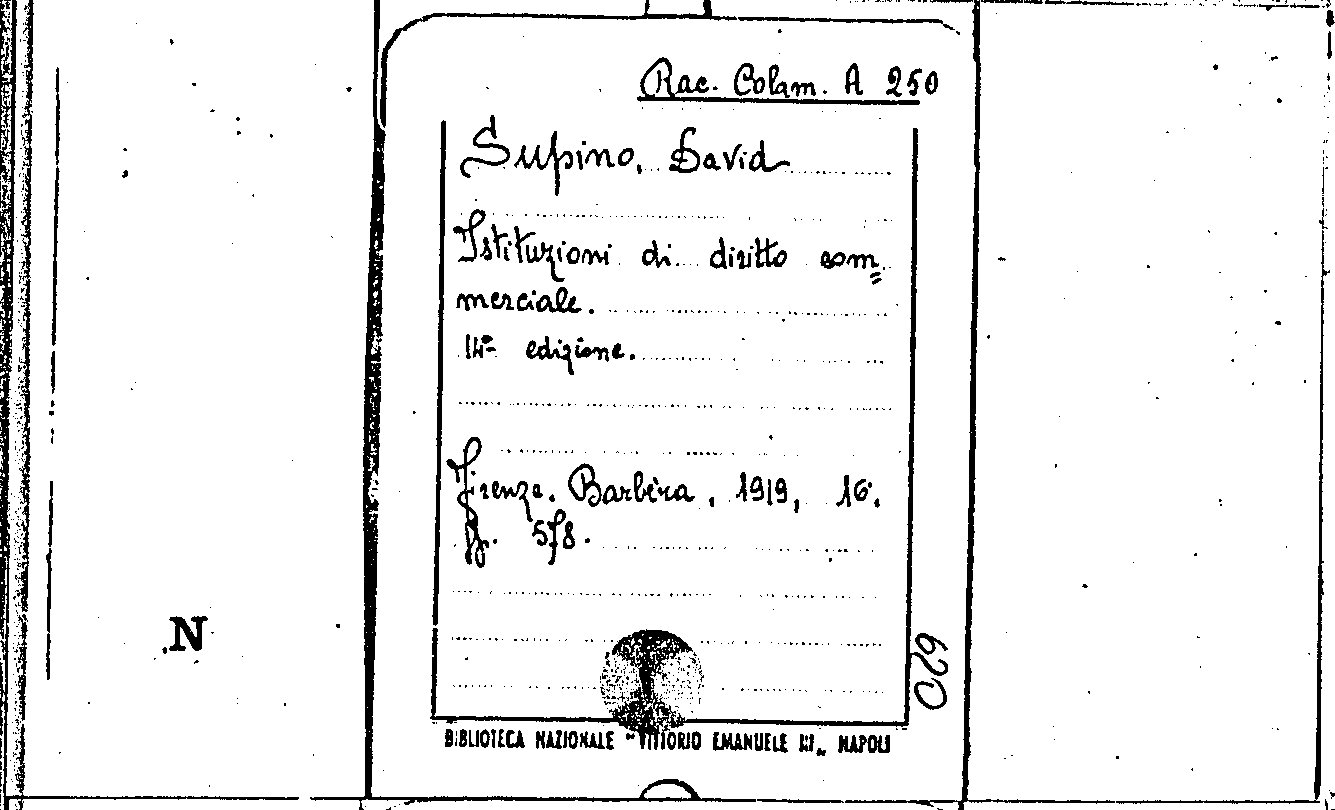 Rac. Colam. A 250
Supino, David
Istituzioni di diritto com=
merciale.
14ª edizione.
Firenze. Barbèra, 1919, 16°.
pp. 578.
N
620
BIBLIOTECA NAZIONALE "VITTORIO EMANUELE III„ NAPOLI